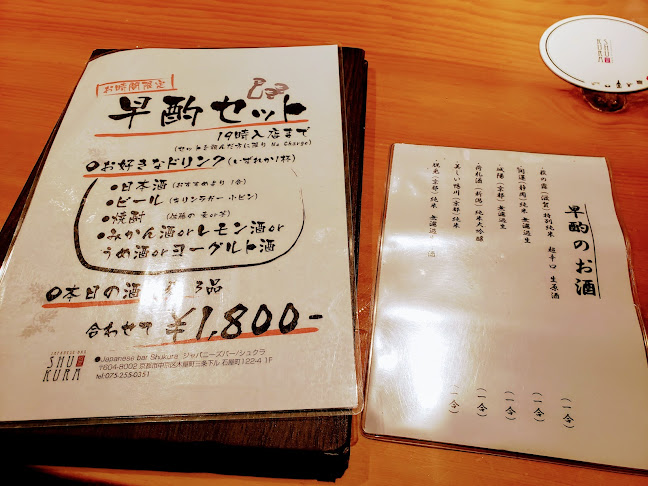 お時間限定
早酌セット
19時入店まで
(セットを頼んだ方に限り No Charge)
お好きなドリンク(いずれか1杯)
•日本酒(おすすめより 1合)
•ビール(キリンラガー 小ビン)
•焼酎(佐藤の 麦or芋)
•みかん酒orレモン酒or
うめ酒orヨーグルト酒
本日の酒 3品
合わせて ¥1,800-
JAPANESE BAR
SHU
KURA
●Japanese bar Shukura ジャパニーズバー/シュクラ
〒604-8002 京都市中京区木屋町三条下ル 石屋町122-4 1F
tel:075-255-0351
早酌のお酒
萩の露(滋賀)特別純米 超辛口 生原酒 (一合)
開運(静岡)純米 無濾過生 (一合)
城陽(京都)純米 無濾過生 (一合)
荷札酒(新潟)純米大吟醸 (一合)
美しい鴨川(京都)純米 (一合)
祝光(京都)純米 無濾過 酒
SHU
KURA